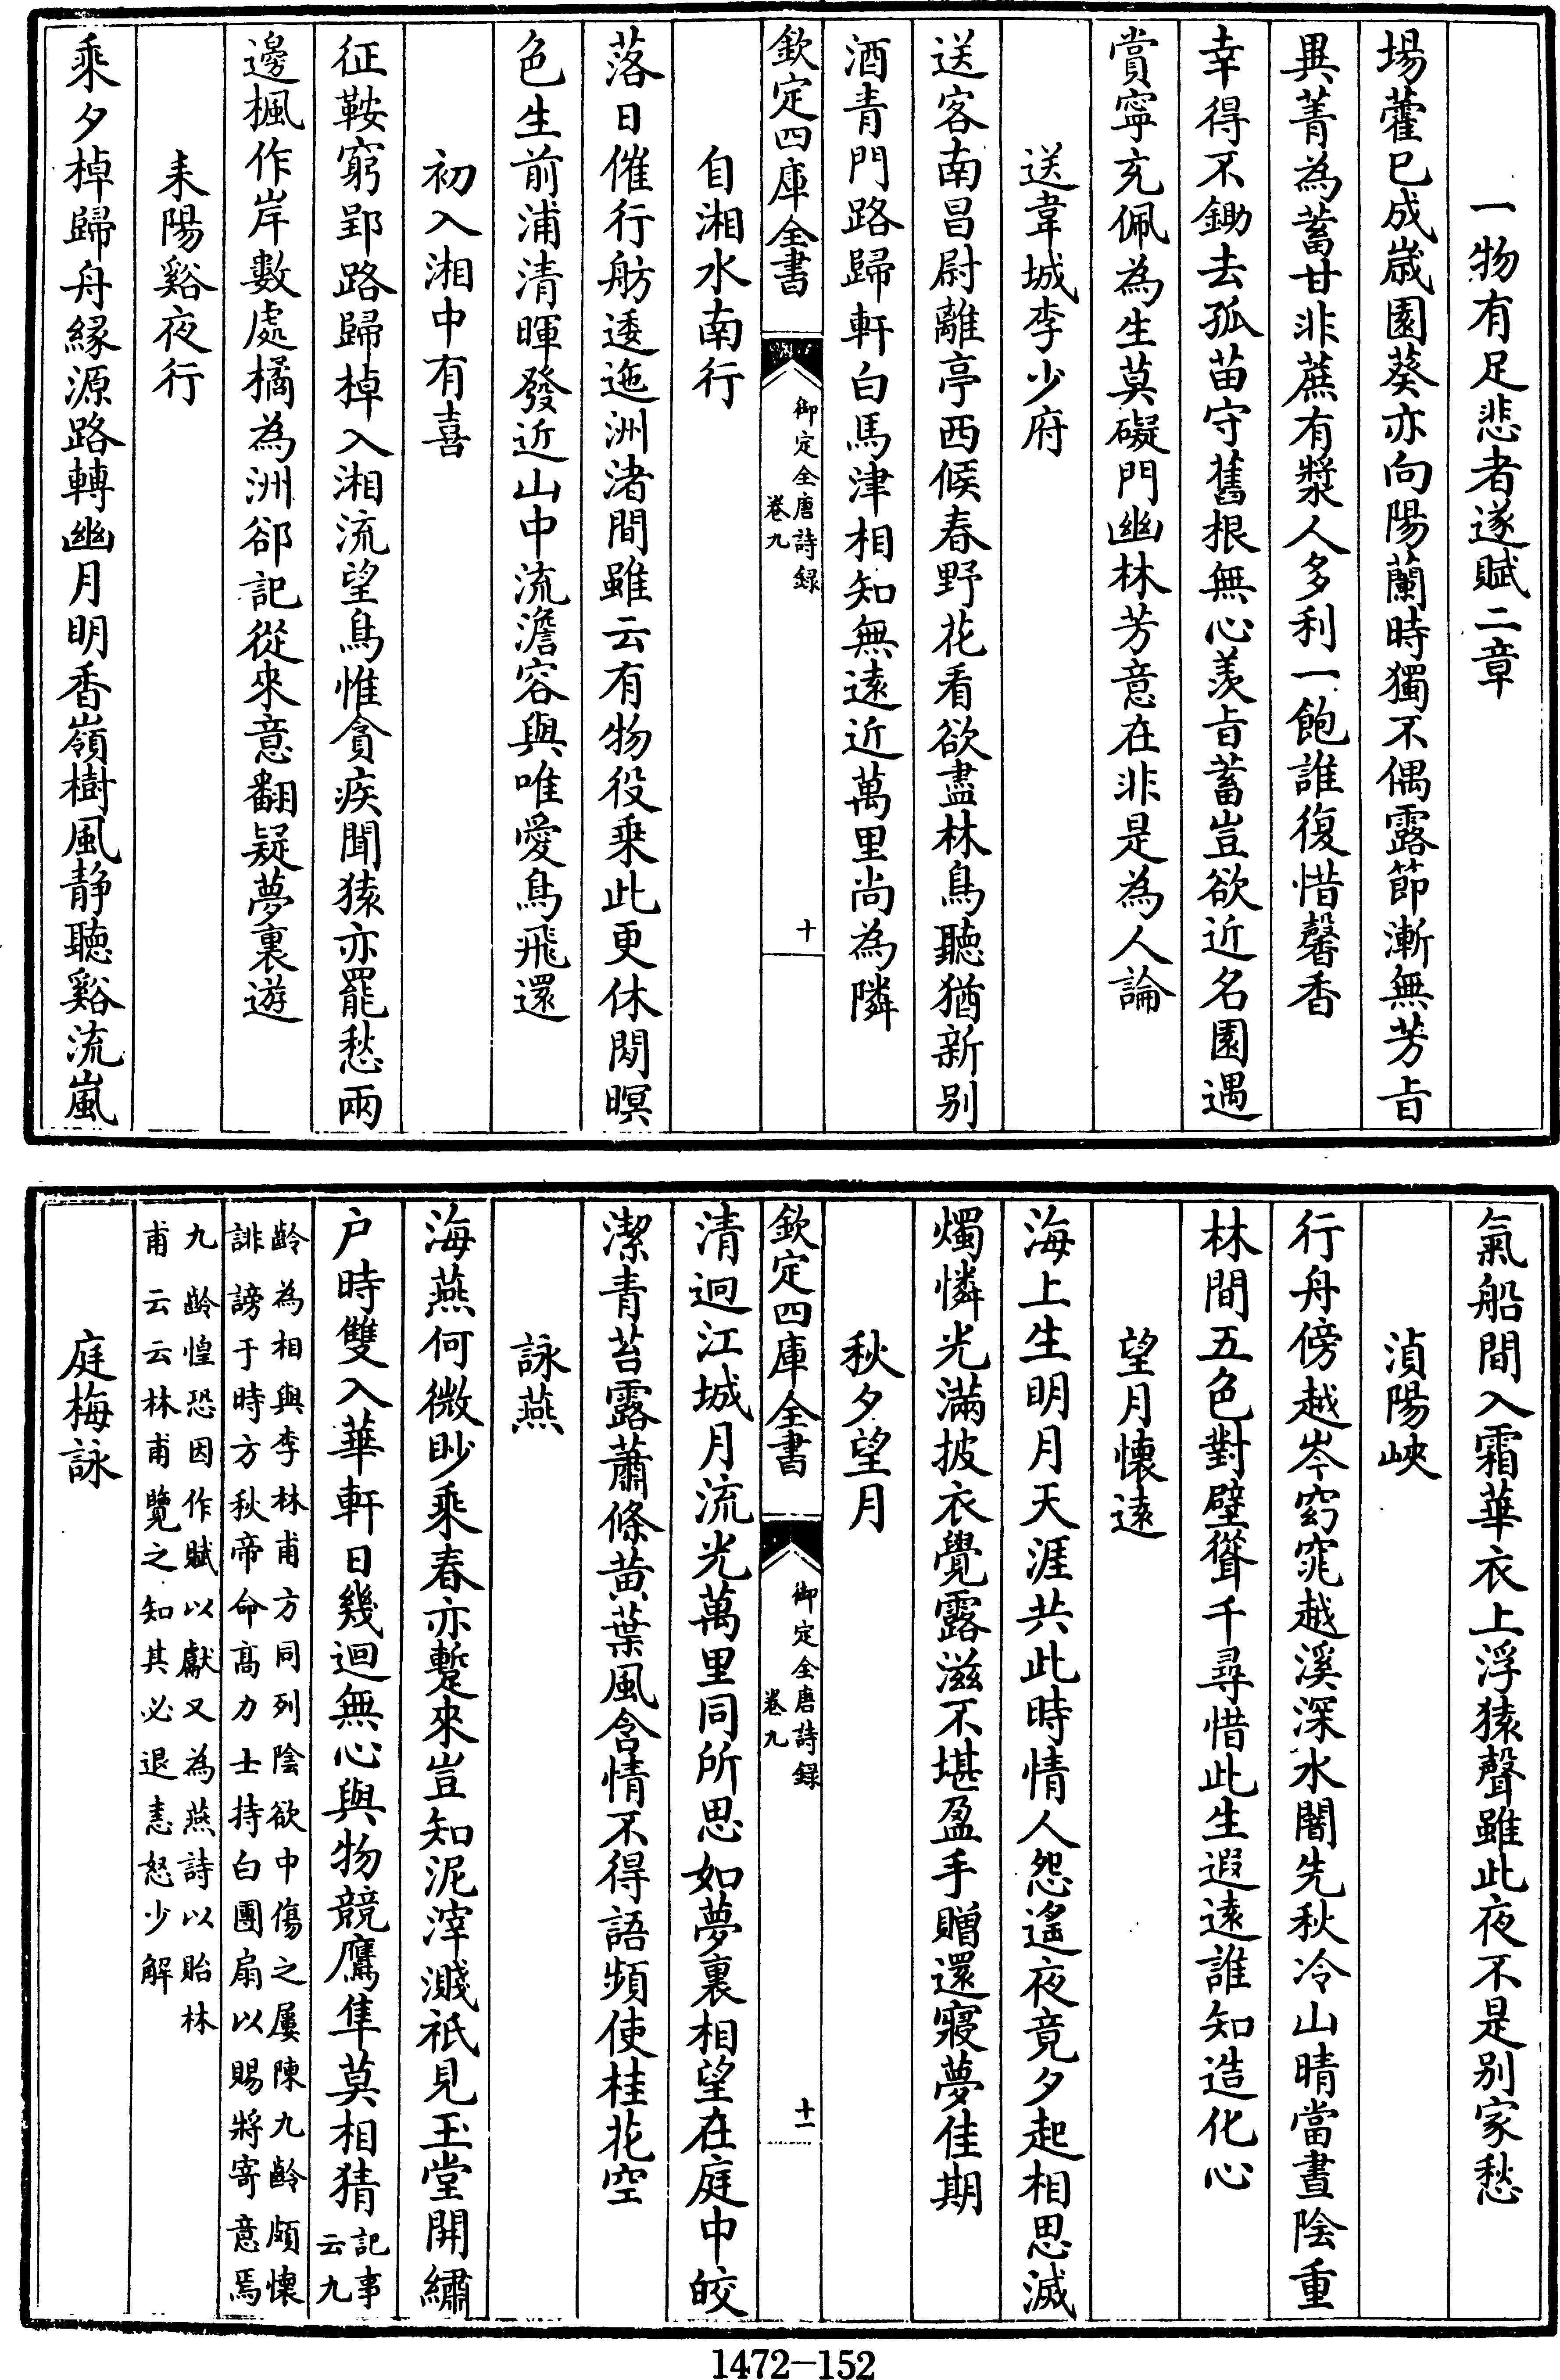 一物有足悲者遂賦二章
場藿已成歲園葵亦向陽蘭時獨不偶露節漸無芳旨
異菁為蓄甘非蔗有漿人多利一飽誰復惜馨香
幸得不鋤去孤苗守舊根無心羨旨蓄豈欲近名園遇
賞寧充佩為生莫礙門幽林芳意在非是為人論
送韋城李少府
送客南昌尉離亭西候春野花看欲盡林鳥聽猶新别
酒青門路歸軒白馬津相知無遠近萬里尚為隣
欽定四庫全書
御定全唐詩録
卷九
十
自湘水南行
落日催行舫逶迤洲渚間雖云有物役乗此更休閒暝
色生前浦清暉發近山中流澹容與唯愛鳥飛還
初入湘中有喜
征鞍窮郢路歸棹入湘流望鳥惟貪疾聞猿亦罷愁兩
邊楓作岸數處橘為洲郤記從來意翻疑夢裏遊
耒陽谿夜行
乘夕棹歸舟緣源路轉幽月明香嶺樹風静聽谿流嵐
氣船間入霜華衣上浮猿聲雖此夜不是别家愁
湞陽峽
行舟傍越岑窈窕越溪深水闇先秋冷山晴當晝陰重
林間五色對壁聳千尋惜此生遐遠誰知造化心
望月懷遠
海上生明月天涯共此時情人怨遙夜竟夕起相思滅
燭憐光滿披衣覺露滋不堪盈手贈還寢夢佳期
秋夕望月
欽定四庫全書
御定全唐詩録
卷九
十一
清迥江城月流光萬里同所思如夢裏相望在庭中皎
潔青苔露蕭條黄葉風含情不得語頻使桂花空
詠燕
海燕何微眇乘春亦蹔來豈知泥滓濺祇見玉堂開繡
户時雙入華軒日幾迴無心與物競鷹隼莫相猜記事
云九
齡為相與李林甫方同列陰欲中傷之屢陳九齡頗懷
誹謗于時方秋帝命高力士持白團扇以賜將寄意焉
九齡惶恐因作賦以獻又為燕詩以貽林
甫云云林甫覽之知其必退恚怒少解
庭梅詠
1472-152